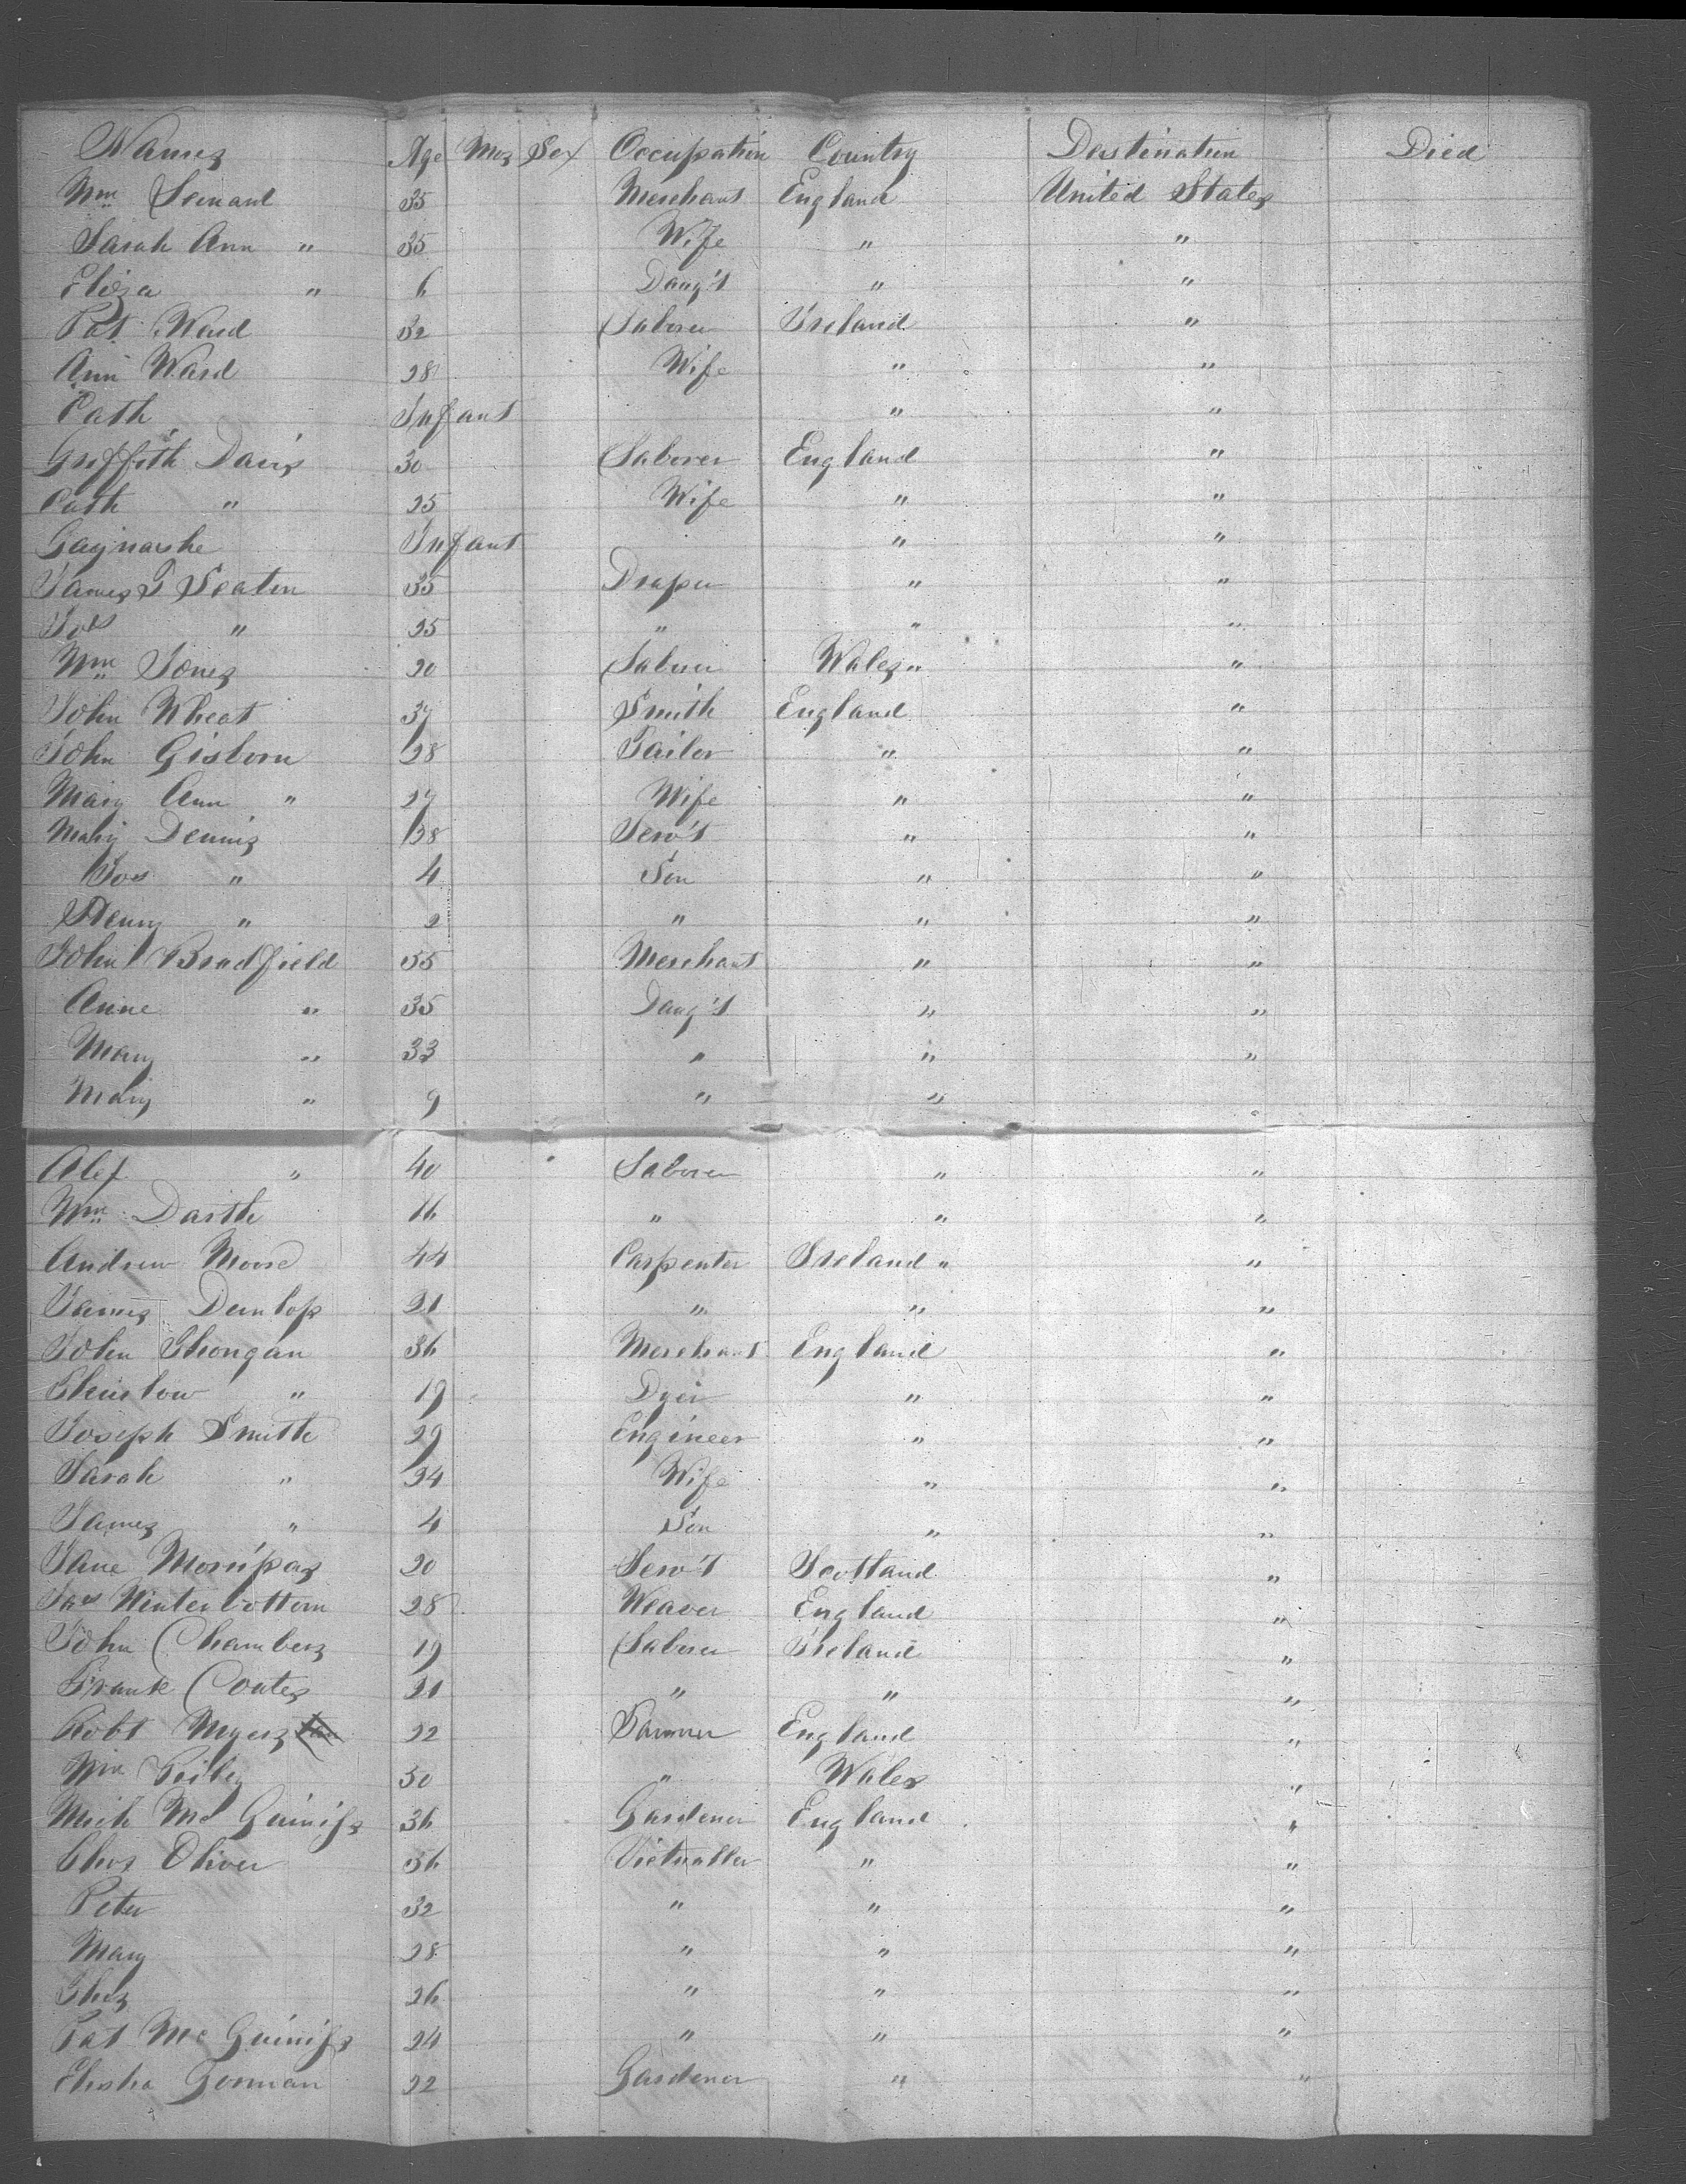 Names Age Mos Sex Occupation Country Destination Died
Wm Servant 35 Merchant England United States
Sarah Ann " 35 Wife " "
Eliza " 6 Daug't " "
Pat Ward 32 Laborer Ireland "
Ann Ward 28 Wife " "
Cath Infant " "
Griffith Davis 30 Laborer England "
Cath " 25 Wife " "
Infant " "
James T Seaton 35 Draper " "
Jos " 25 " " "
Wm Jones 20 Laborer Wales " "
John Wheat 37 Smith England "
John Gisborn 28 Tailor " "
Mary Ann " 27 Wife " "
Mary Dennis 38 Serv't " "
Jos " 4 Son " "
Henry " 2 " " "
John Bradfield 55 Merchant " "
Anne " 35 Daug't " "
Mary " 33 " " "
Mary " 9 " " "
Alex " 40 Laborer " "
Wm 16 " " "
Andrew Moore 44 Carpenter Ireland " "
James Dunlop 21 " " "
John 36 Merchant England "
" 19 Dyer " "
Joseph Smith 29 Engineer " "
Sarah " 24 Wife " "
James " 4 Son " "
Jane 20 Serv't Scotland "
Jas Winterbottom 28 Weaver England "
John Chambers 19 Laborer Ireland "
Frank Coates 21 " " "
Robt Myers 22 Farmer England "
Wm 30 " Wales "
Mich Mc Guiniss 36 Gardener England "
Chas Oliver 36 Victualler " "
Peter 32 " " "
Mary 28 " " "
Thos 26 " " "
Pat Mc Guiniss 24 " " "
Elisha Gorman 22 Gardener " "